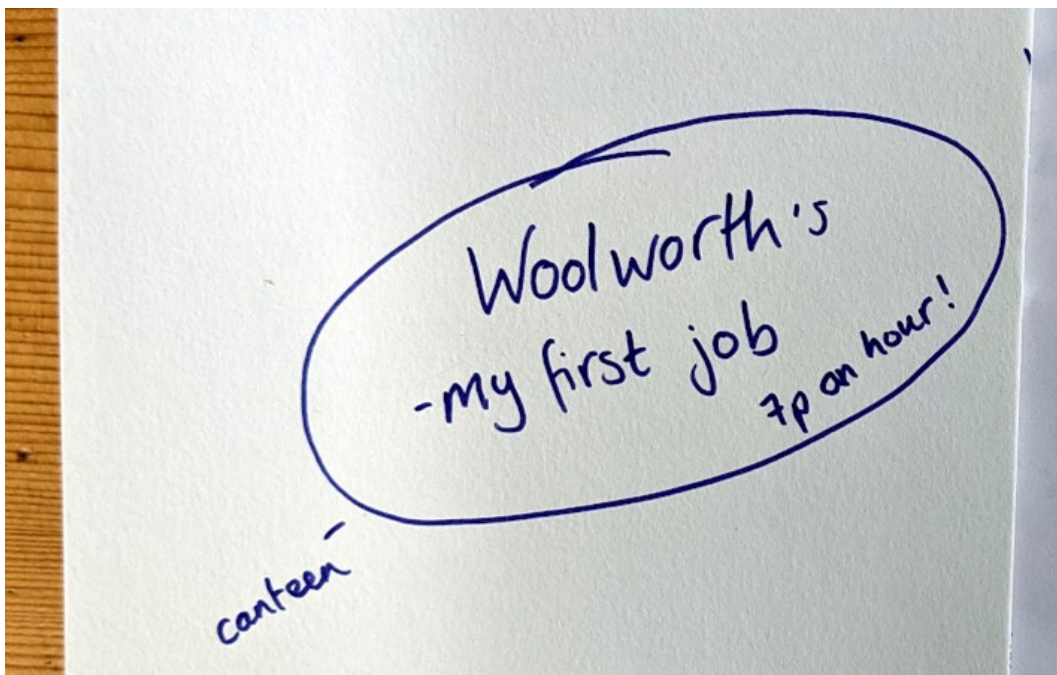 Woolworth's
-my first job
7p an hour!
canteen